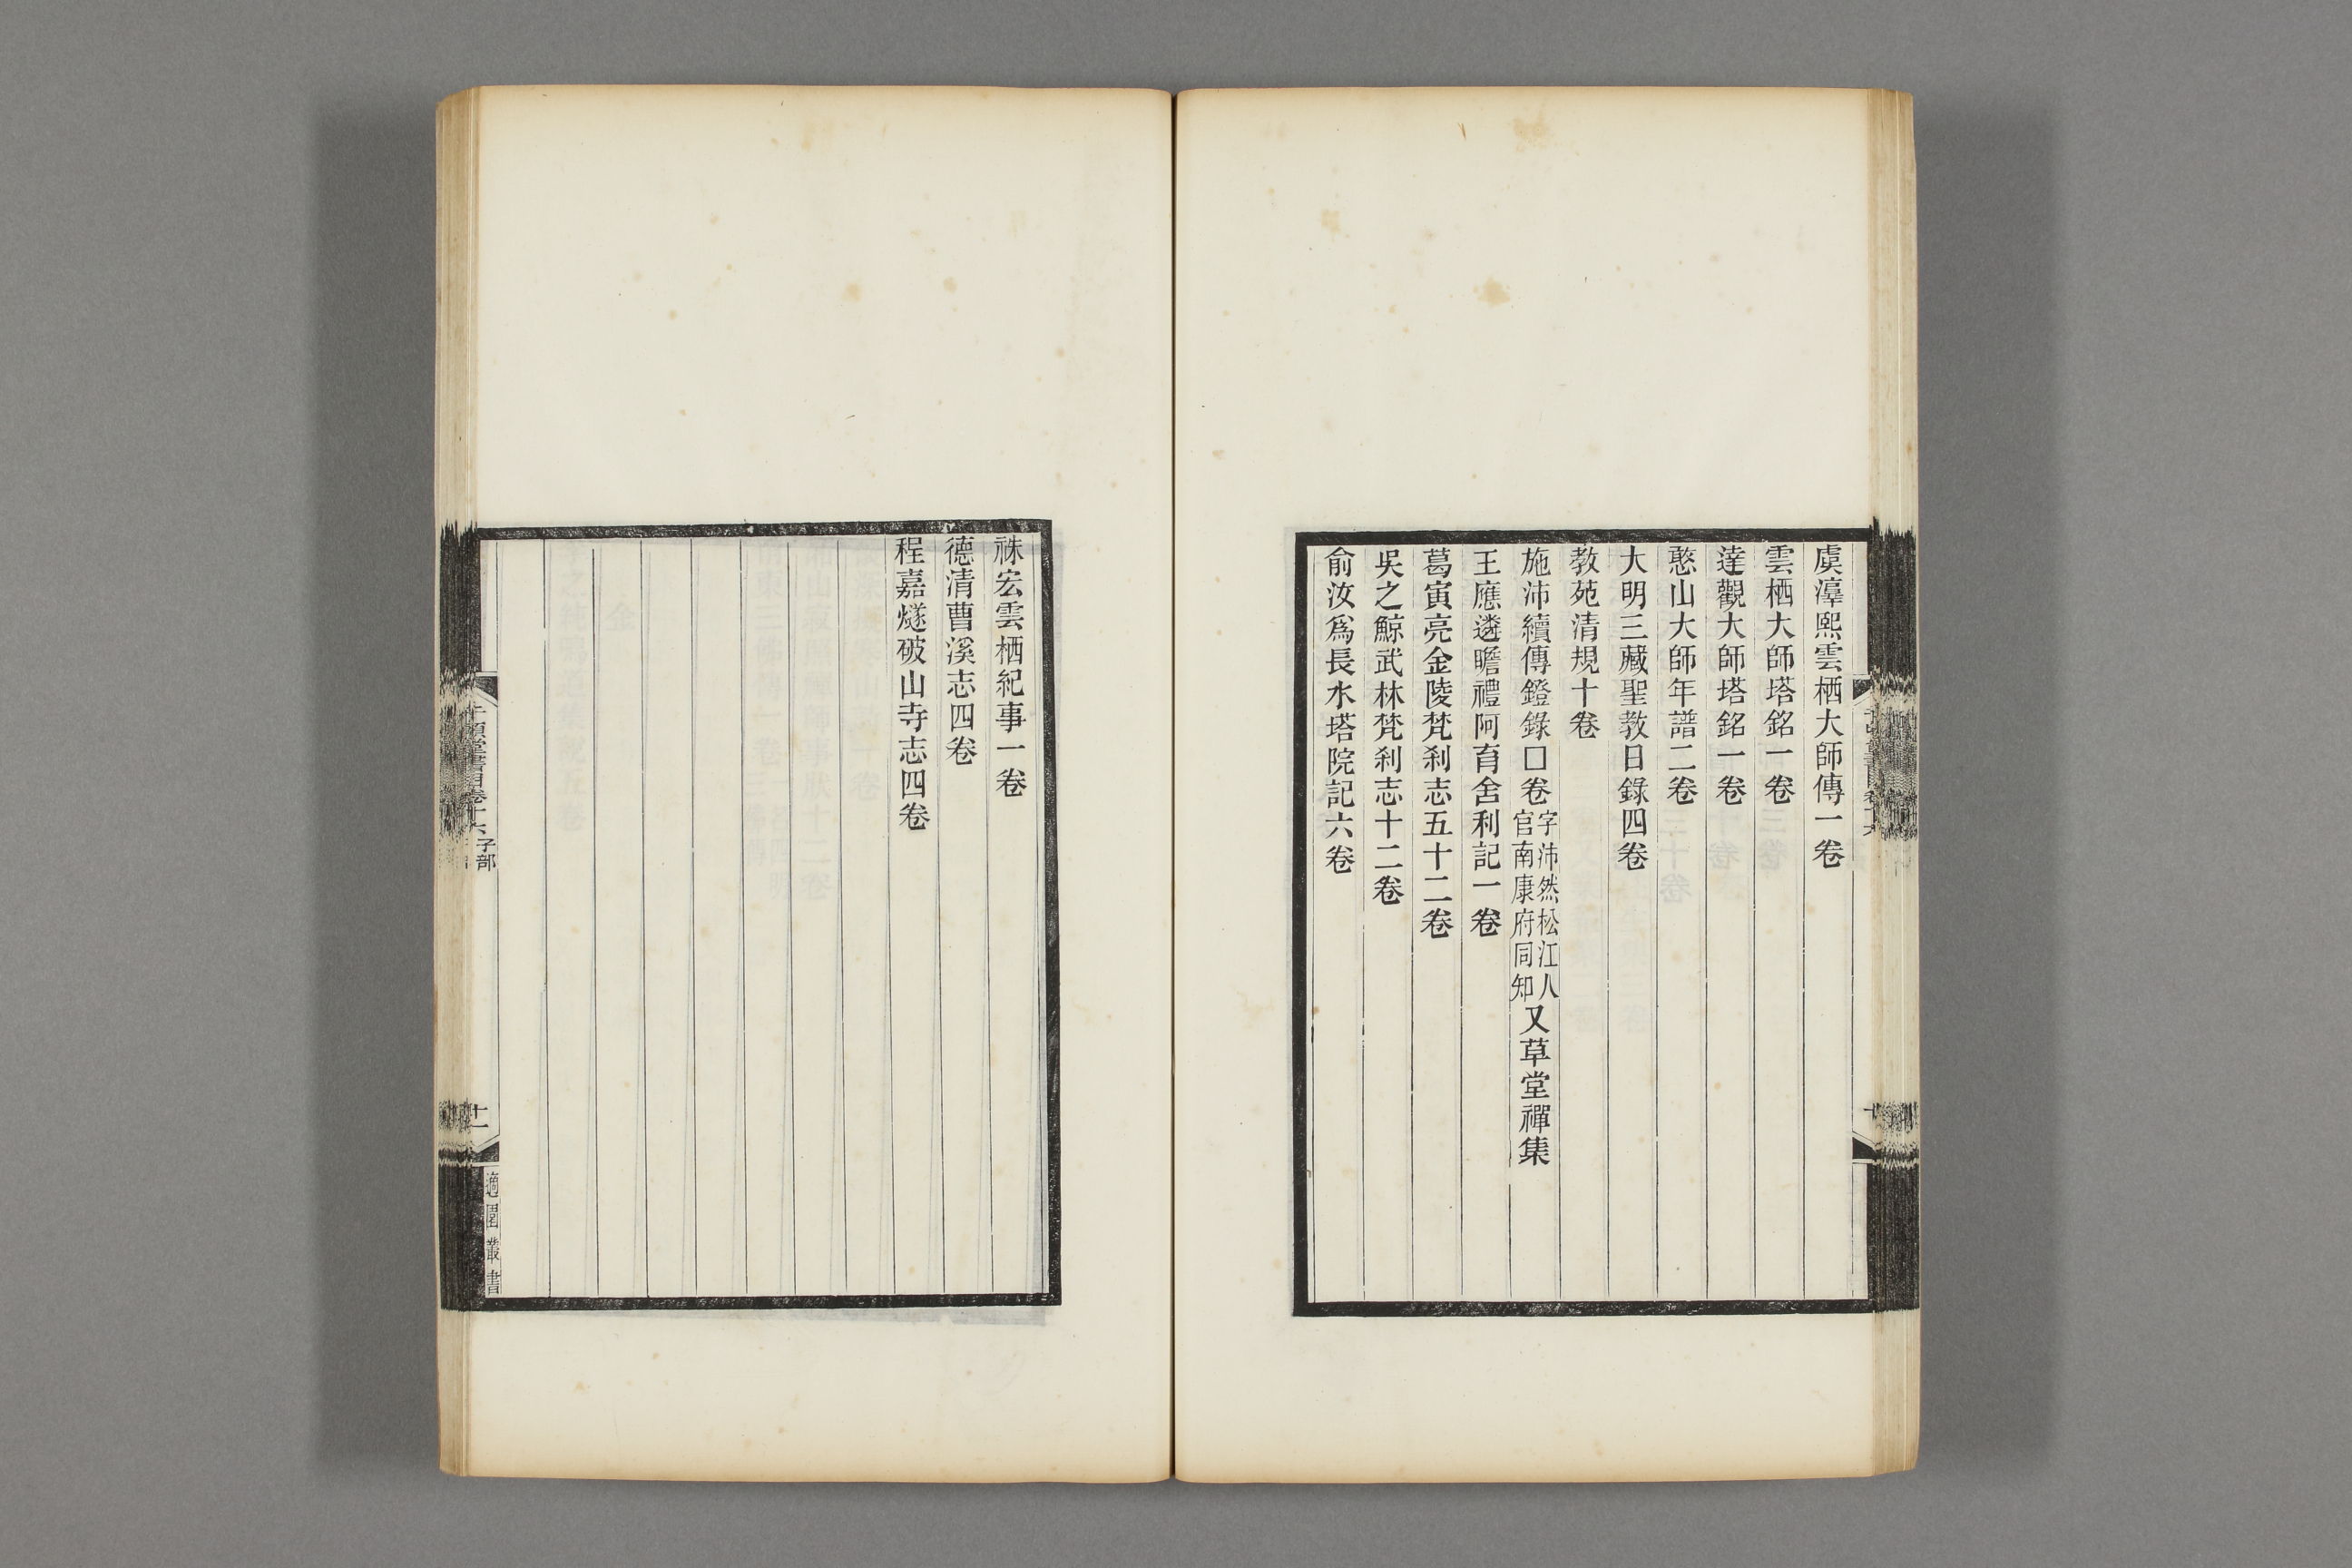 虞淳熙雲栖大師傳一卷
雲栖大師塔銘一卷
達觀大師塔銘一卷
憨山大師年譜二卷
大明三藏聖教日錄四卷
教苑清規十卷
施沛續傳鐙錄口卷字沛然松江人官南康府同知又草堂禪集
王應遴瞻禮阿育舍利記一卷
葛寅亮金陵梵刹志五十二卷
吳之鯨武林梵刹志十二卷
俞汝爲長水塔院記六卷
祩宏雲栖紀事一卷
德清曹溪志四卷
程嘉燧破山寺志四卷
千頃堂書目卷十六 子部
十一
適園叢書